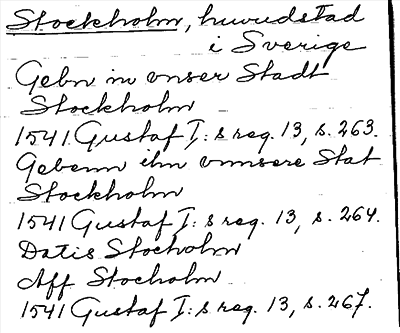 Stockholm, huvudstad
i Sverige
Gebn in vnser Stadt
Stockholm
1541 Gustaf I:s reg. 13, s. 263.
Gebenn ihn vnnsere Stat
Stockholm
1541 Gustaf I:s reg. 13, s. 264.
Datis Stocholm
Aff Stocholm
1541 Gustaf I:s reg. 13, s. 267.